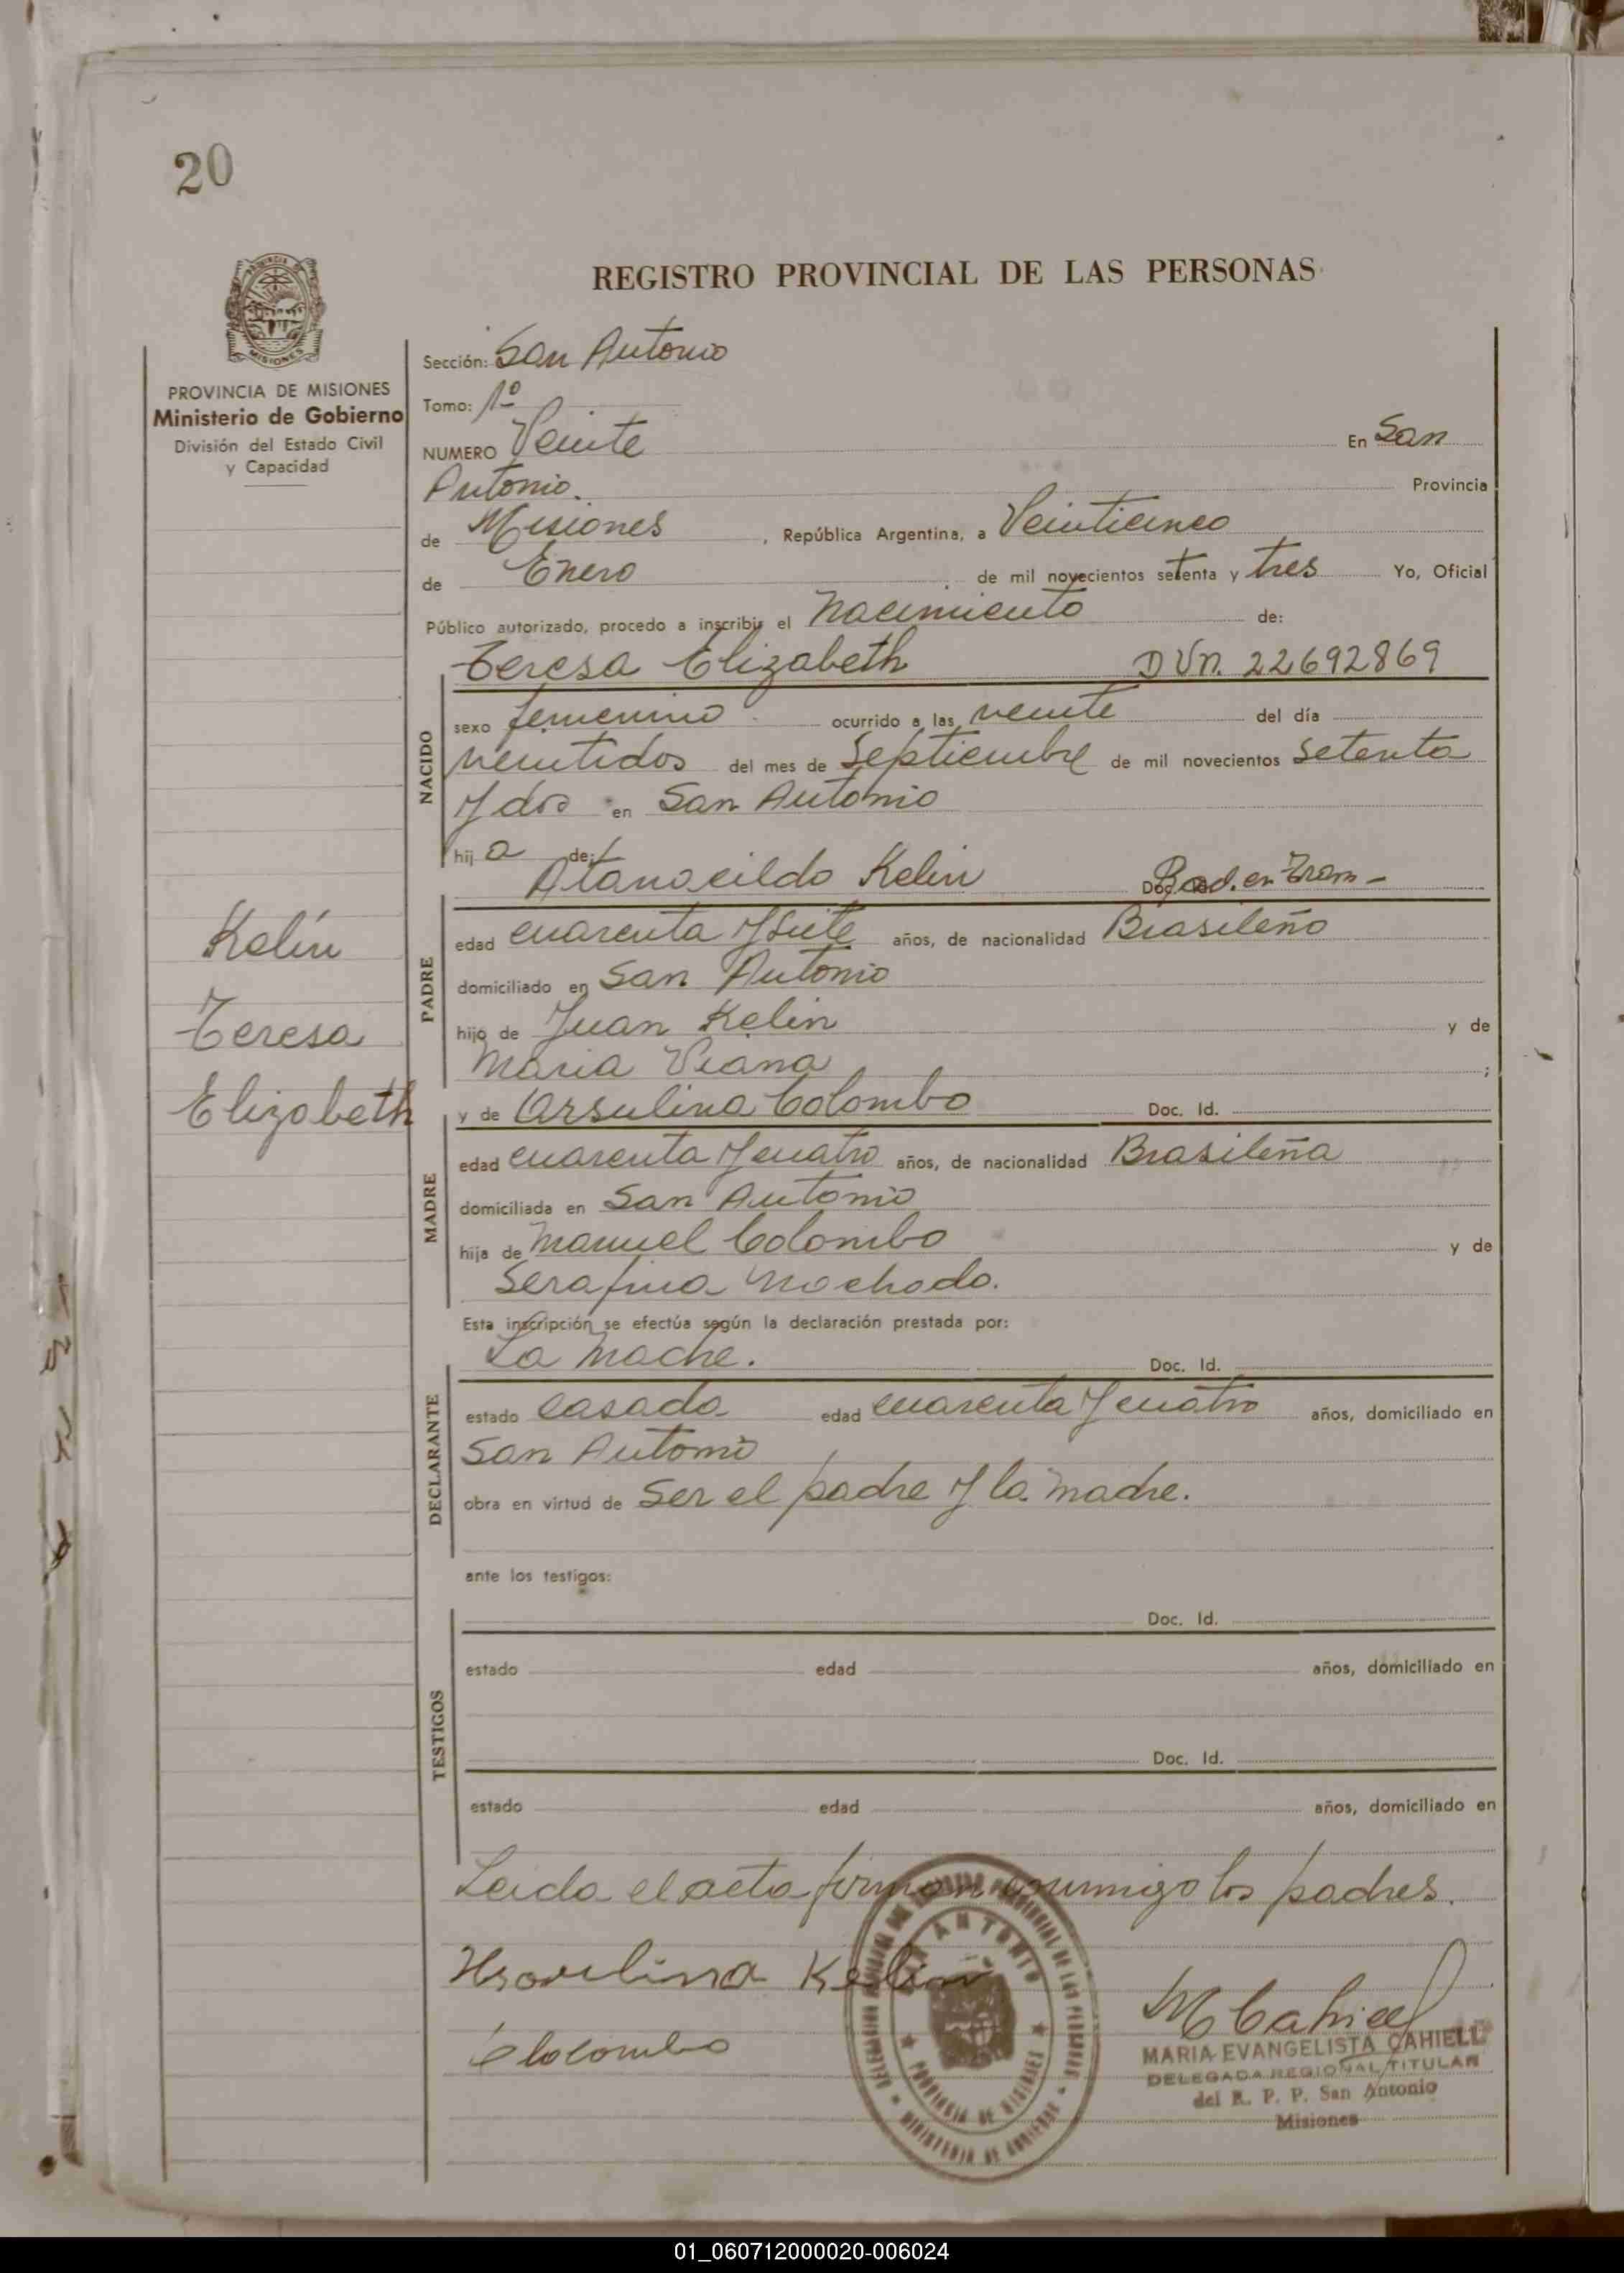 20
REGISTRO PROVINCIAL DE LAS PERSONAS
PROVINCIA DE MISIONES
Ministerio de Gobierno
División del Estado Civil
y Capacidad
Sección: San Antonio
Tomo: 1º
NUMERO Veinte En San
Antonio. Provincia
de Misiones, República Argentina, a Veinticinco
de Enero de mil novecientos setenta y tres Yo, Oficial
Público autorizado, procedo a inscribir el Nacimiento de:
Teresa Elizabeth DVn. 22692869
NACIDO
sexo femenino ocurrido a las veinte del día
veintidos del mes de Septiembre de mil novecientos Setenta
y dos en San Antonio
hij a de:
Atanacildo Kelin Doc. en Tram-
PADRE
edad cuarenta y siete años, de nacionalidad Brasileño
domiciliado en San Antonio
hijo de Juan Kelin y de
Maria Viana ;
Kelín
Teresa
Elizabeth
y de Orsulina Colombo Doc. Id.
MADRE
edad cuarenta y cuatro años, de nacionalidad Brasileña
domiciliada en San Antonio
hija de Manuel Colombo y de
Serafina Machado.
Esta inscripción se efectúa según la declaración prestada por:
La Madre. Doc. Id.
DECLARANTE
estado Casada edad cuarenta y cuatro años, domiciliado en
San Antonio
obra en virtud de Ser el padre y la madre.
ante los testigos:
Doc. Id.
TESTIGOS
estado edad años, domiciliado en
Doc. Id.
estado edad años, domiciliado en
Leida el acta firman conmigo los padres.
Kelin
MCahiell
MARIA EVANGELISTA CAHIELL
DELEGADA REGIONAL TITULAR
del R. P. P. San Antonio
Misiones
SAN ANTONIO
PROVINCIA DE MISIONES
MINISTERIO DE GOBIERNO
01_060712000020-006024